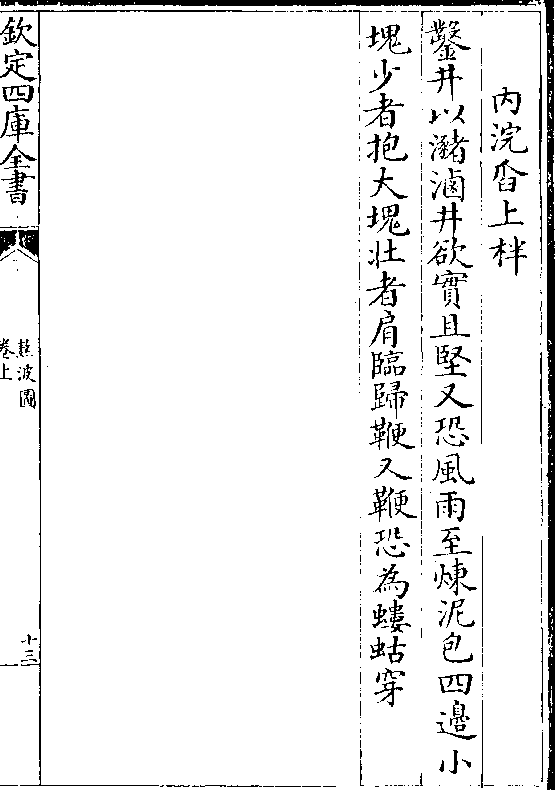 丙浣畨上柈
鑿井以瀦滷井欲實且堅又恐風雨至煉泥包四邉小
塊少者抱大塊壮者肩臨歸鞭又鞭恐為螻蛄穿
欽定四庫全書
熬波圖
卷上
十三